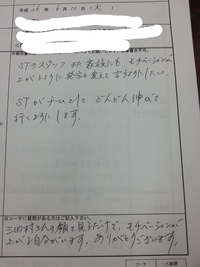 平成26年6月10日(火)
STのスタッフ また家族にも、モチベーションが
上がるように発言を変えて言うようにしたい。
STがチームとして どんどん伸びて
行くようにします。
※コーチに質問がある方はご記入下さい。
三田村さんの顔を見るだけで、モチベーションが
上がる自分がいます。ありがとうございます。
コーチ 人事課